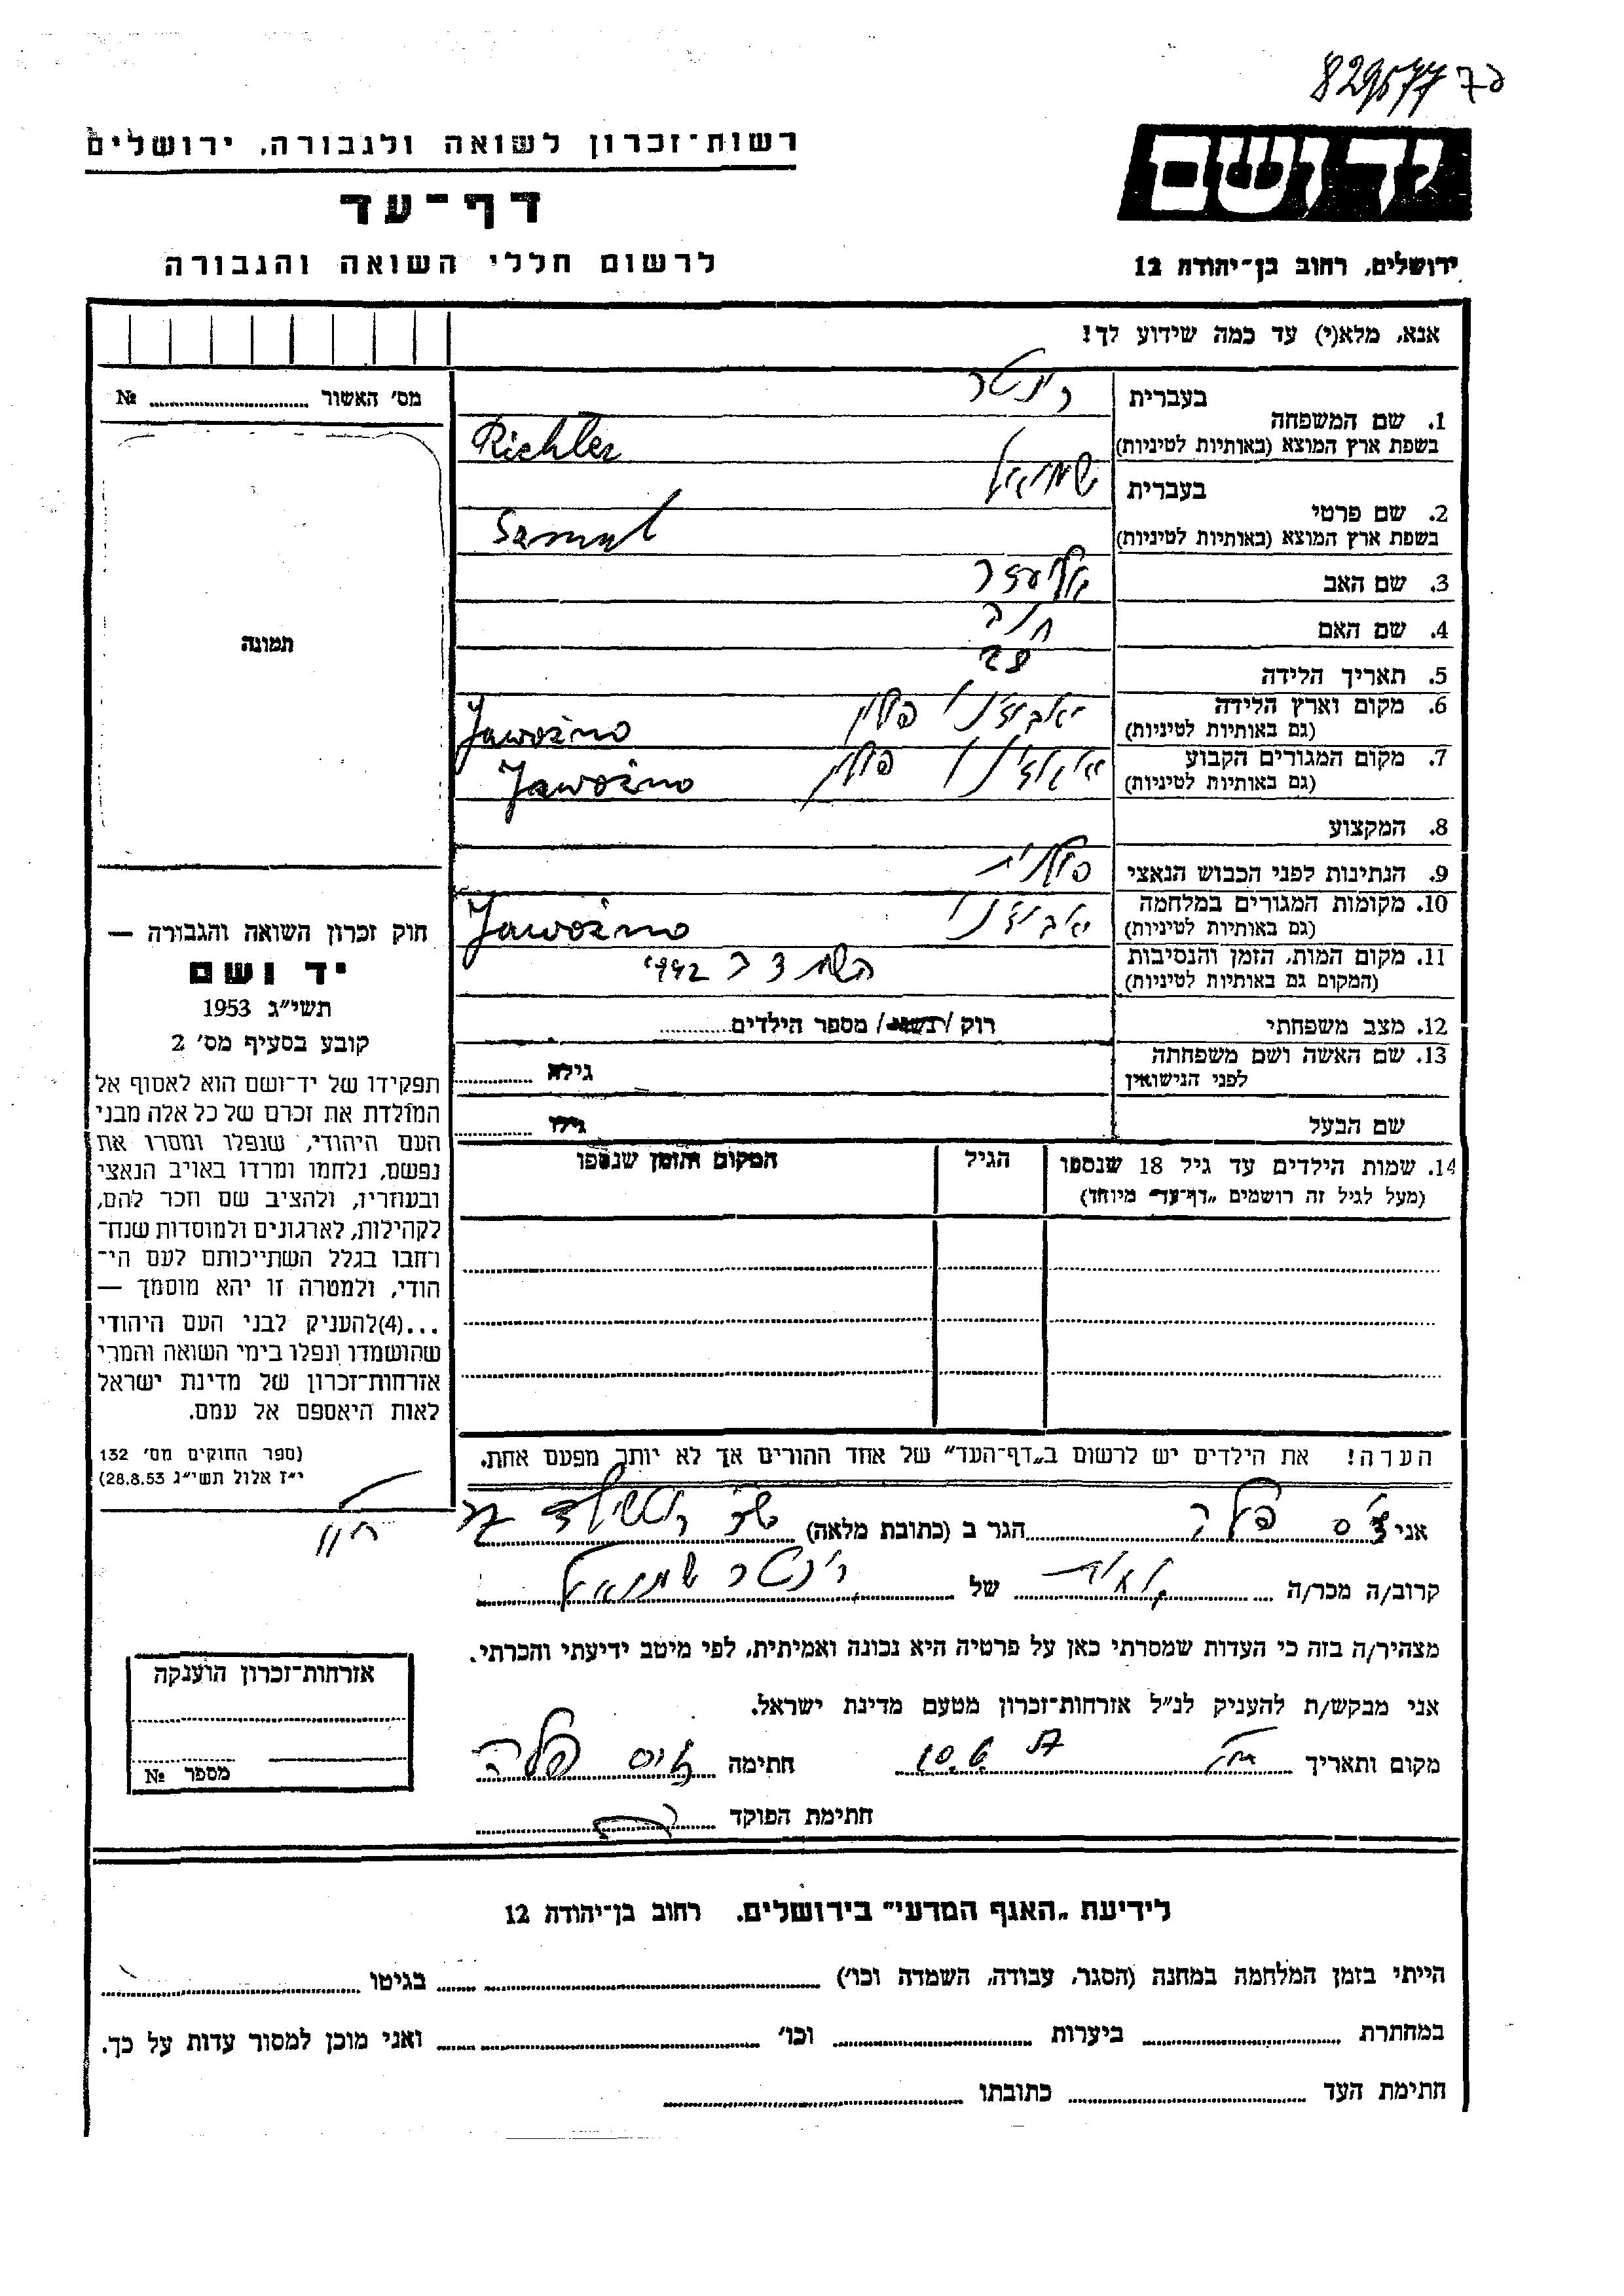 829577 70
רשות־זכרון לשואה ולגבורה, ירושלים
דף־עד
לרשום חללי השואה והגבורה
יד ושם
ירושלים, רחוב בן־יהודה 12
אנא, מלא(י) עד כמה שידוע לך!
מס׳ האשור № 
תמונה
1. שם המשפחה
בעברית
בשפת ארץ המוצא (באותיות לטיניות) Richler
2. שם פרטי
בעברית שמואל
בשפת ארץ המוצא (באותיות לטיניות) Samul
3. שם האב אליעזר
4. שם האם
5. תאריך הלידה 28
6. מקום וארץ הלידה פולין Jaworzno
(גם באותיות לטיניות)
7. מקום המגורים הקבוע פולין Jaworzno
(גם באותיות לטיניות)
8. המקצוע
9. הנתינות לפני הכבוש הנאצי פולנית
10. מקומות המגורים במלחמה Jaworzno
(גם באותיות לטיניות)
11. מקום המות, הזמן והנסיבות 1942
(המקום גם באותיות לטיניות)
12. מצב משפחתי רוק / נשוא / מספר הילדים
13. שם האשה ושם משפחתה
לפני הנישואין גילה
שם הבעל גילו
14. שמות הילדים עד גיל 18 שנספו הגיל המקום והזמן שנספו
(מעל לגיל זה רושמים „דף־עד״ מיוחד)
הערה! את הילדים יש לרשום ב„דף־העד״ של אחד ההורים אך לא יותר מפעם אחת.
חוק זכרון השואה והגבורה —
יד ושם
תשי״ג 1953
קובע בסעיף מס׳ 2
תפקידו של יד־ושם הוא לאסוף אל
המולדת את זכרם של כל אלה מבני
העם היהודי, שנפלו ומסרו את
נפשם, נלחמו ומרדו באויב הנאצי
ובעוזריו, ולהציב שם וזכר להם,
לקהילות, לארגונים ולמוסדות שנח־
רחבו בגלל השתייכותם לעם הי־
הודי, ולמטרה זו יהא מוסמך —
...(4)להעניק לבני העם היהודי
שהושמדו ונפלו בימי השואה והמרי
אזרחות־זכרון של מדינת ישראל
לאות היאספם אל עמם.
(ספר החוקים מס׳ 132
י״ז אלול תשי״ג 28.8.53)
אני הגר ב (כתובת מלאה)
קרוב/ה מכר/ה של שמואל
מצהיר/ה בזה כי העדות שמסרתי כאן על פרטיה היא נכונה ואמיתית, לפי מיטב ידיעתי והכרתי.
אני מבקש/ת להעניק לנ״ל אזרחות־זכרון מטעם מדינת ישראל.
מקום ותאריך חתימה
חתימת הפוקד
אזרחות־זכרון הוענקה
מספר №
לידיעת „האגף המדעי״ בירושלים, רחוב בן־יהודה 12
הייתי בזמן המלחמה במחנה (הסגר, עבודה, השמדה וכו׳) בגיטו
במחתרת ביערות וכו׳ ואני מוכן למסור עדות על כך.
חתימת העד כתובתו